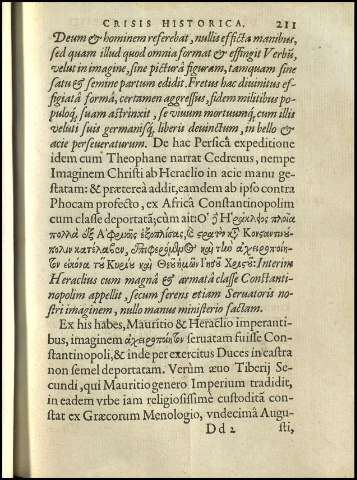 CRISIS HISTORICA. 211
Deum & hominem referebat, nullis efficta manibus,
sed quam illud quod omnia format & effingit Verbũ,
velut in imagine, sine picturâ figuram, tamquam sine
satu & semine partum edidit. Fretus hac diuinitus ef-
figiatâ formâ, certamen aggressus, fidem militibus po-
puloq; suam astrinxit, se viuum mortuumq; cum illis
veluti suis germanisq; liberis deuinctum, in bello &
acie perseueraturum. De hac Persicâ expeditione
idem cum Theophane narrat Cedrenus, nempe
Imaginem Christi ab Heraclio in acie manu ge-
statam: & prætereà addit, eamdem ab ipso contra
Phocam profecto, ex Africâ Constantinopolim
cum classe deportatã; cùm ait: Ὁ ἢ Ἡράκλῃος πλοῖα
πολλὰ ἐξ Ἀφρικῆς ἐξοπλίσας, καὶ στρατὸν κτ᾽ Κονσταντινου-
πολιν κατέλαβον, ἐπιφερόμενος καὶ τὴν ἀχειροποίη-
τον εἰκόνα τοῦ Κυρίου καὶ Θεοῦ ἡμῶν Ἰησοῦ Χριστοῦ: Interim
Heraclius cum magnâ & armatâ classe Constanti-
nopolim appellit, secum ferens etiam Seruatoris no-
stri imaginem, nullo manus ministerio factam.
Ex his habes, Mauritio & Heraclio imperanti-
bus, imaginem ἀχειροποίητον seruatam fuisse Con-
stantinopoli, & inde per exercitus Duces in castra
non semel deportatam. Verùm æuo Tiberij Se-
cundi, qui Mauritio genero Imperium tradidit,
in eadem vrbe iam religiosissimè custoditã con-
stat ex Græcorum Menologio, vndecimâ Augu-
Dd 2 sti,